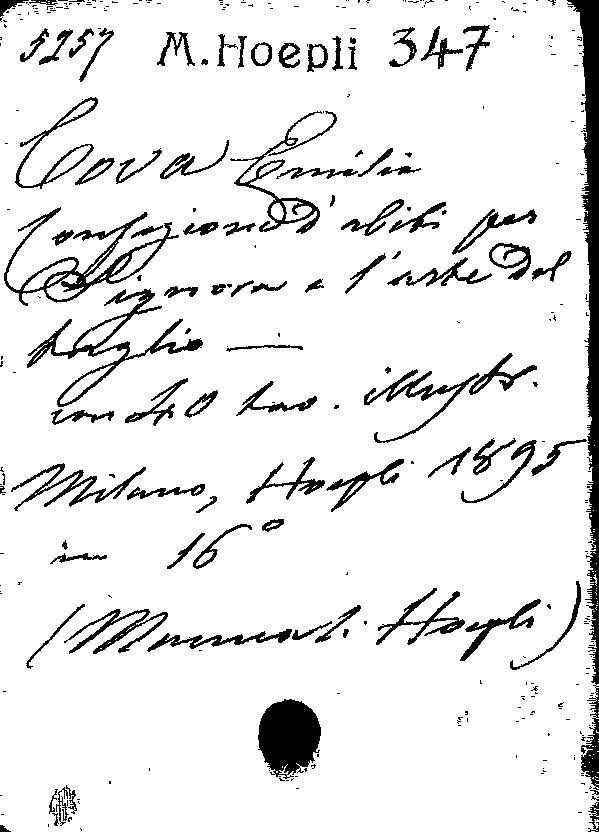 5257 M. Hoepli 347
Cova Emilia
Confezione d'abiti per
Signora e l'arte del
taglio —
con 40 tav. illustr.
Milano, Hoepli 1895
in 16°
(Manuali Hoepli)